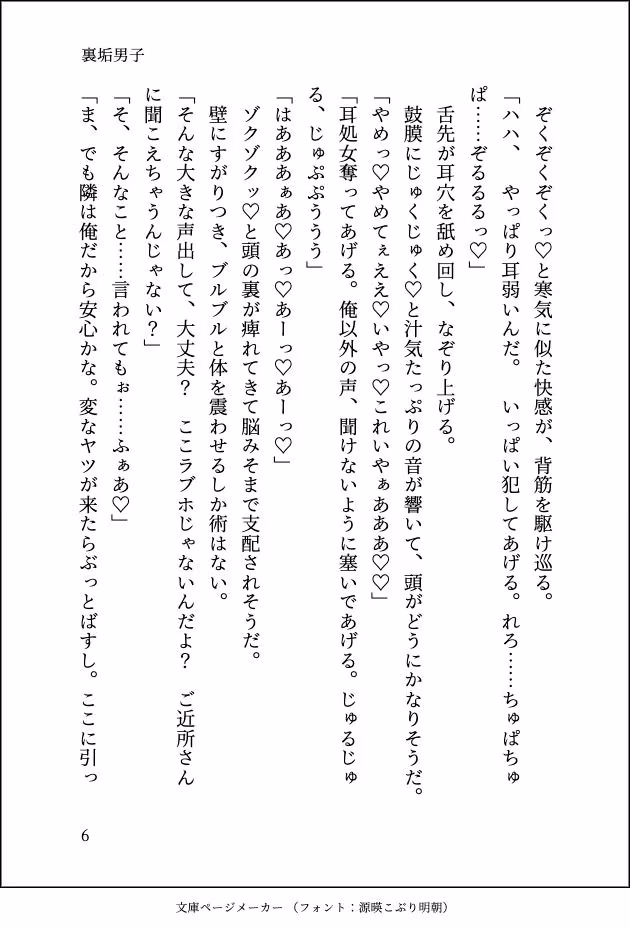 裏垢男子
　ぞくぞくぞくっ♡と寒気に似た快感が、背筋を駆け巡る。
「ハハ、　やっぱり耳弱いんだ。　いっぱい犯してあげる。れろ……ちゅぱちゅ
ぱ……ぞるるるっ♡」
　舌先が耳穴を舐め回し、なぞり上げる。
　鼓膜にじゅくじゅく♡と汁気たっぷりの音が響いて、頭がどうにかなりそうだ。
「やめっ♡やめてぇええ♡いやっ♡これいやぁあああ♡♡」
「耳処女奪ってあげる。俺以外の声、聞けないように塞いであげる。じゅるじゅ
る、じゅぷぷううう」
「はああああぁあ♡あっ♡あーっ♡あーっ♡」
　ゾクゾクッ♡と頭の裏が痺れてきて脳みそまで支配されそうだ。
　壁にすがりつき、ブルブルと体を震わせるしか術はない。
「そんな大きな声出して、大丈夫？　ここラブホじゃないんだよ？　ご近所さん
に聞こえちゃうんじゃない？」
「そ、そんなこと……言われてもぉ……ふぁあ♡」
「ま、でも隣は俺だから安心かな。変なヤツが来たらぶっとばすし。ここに引っ
6
文庫ページメーカー（フォント：源暎こぶり明朝）